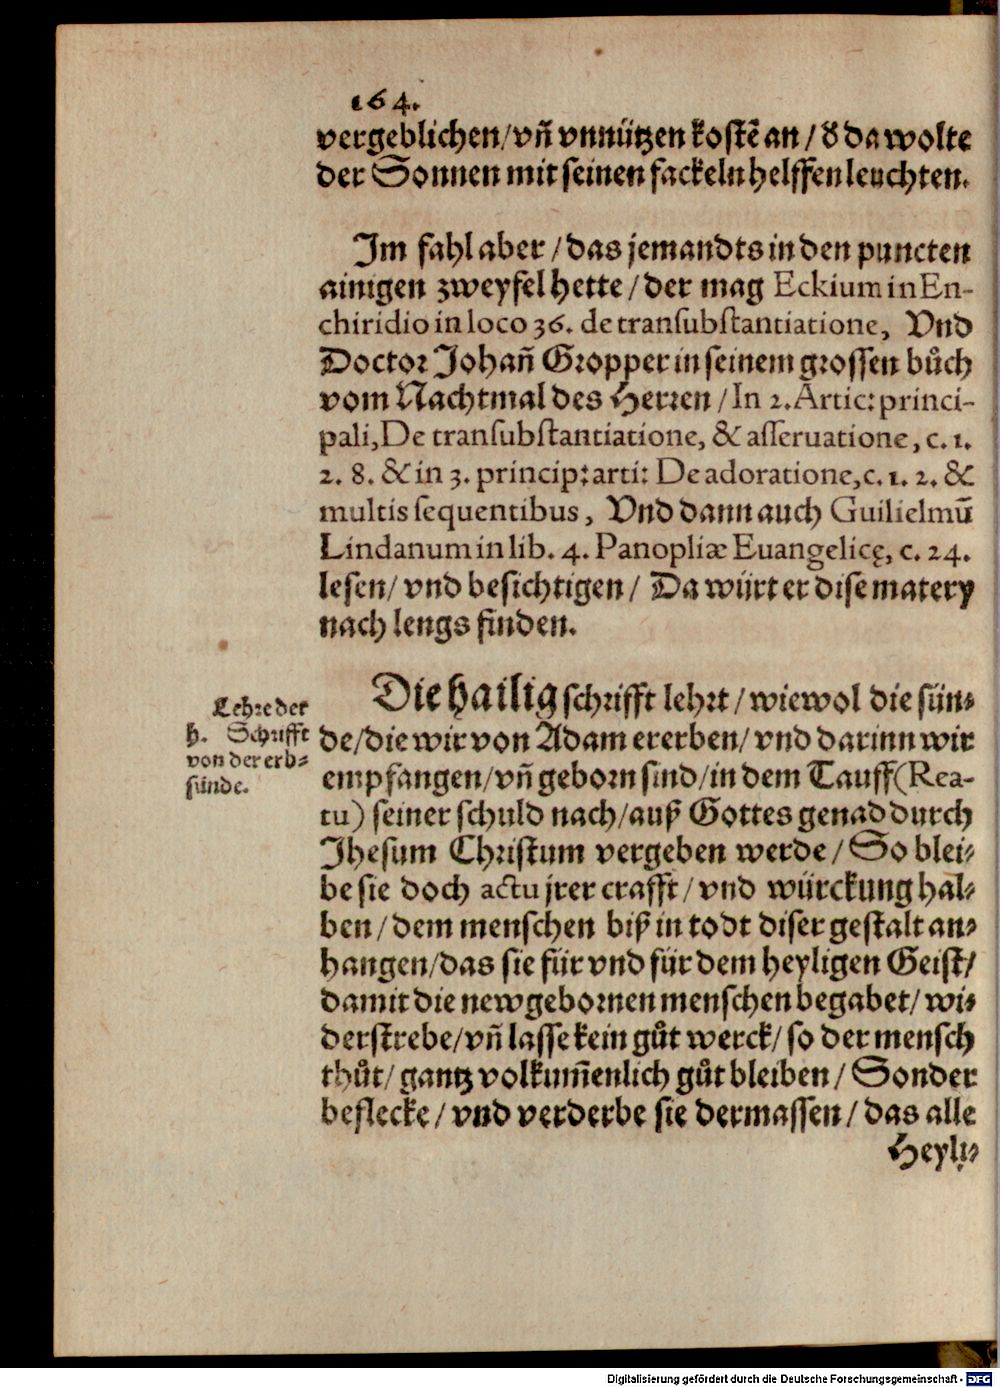 164.
vergeblichen/vñ vnnützen kostẽ an/ d̕ da wolte
der Sonnen mit seinen fackeln helffen leuchten.
Im fahl aber/das jemandts in den puncten
ainigen zweyfel hette/der mag Eckium in En-
chiridio in loco 36. de transubstantiatione, Vnd
Doctor Johañ Gropper in seinem grossen bůch
vom Nachtmal des Herren/In 2.Artic: princi-
pali,De transubstantiatione, & asseruatione, c. 1.
2. 8. & in 3. princip: arti: De adoratione,c. 1. 2. &
multis sequentibus, Vnd dann auch Guilielmū
Lindanum in lib. 4. Panopliæ Euangelicę, c. 24.
lesen/ vnd besichtigen/ Da würt er dise matery
nach lengs finden.
Lehre der
h. Schrifft
von der erb⸗
sünde.
Die hailig schrifft lehrt/wiewol die sün⸗
de/die wir von Adam ererben/ vnd darinn wir
empfangen/vñ geborn sind/in dem Tauff(Rea-
tu) seiner schuld nach/auß Gottes genad durch
Jhesum Christum vergeben werde/ So blei⸗
be sie doch actu jrer crafft/ vnd würckung hal⸗
ben/dem menschen biß in todt diser gestalt an⸗
hangen/das sie für vnd für dem heyligen Geist/
damit die newgebornen menschen begabet/ wi⸗
derstrebe/vñ lasse kein gůt werck/ so der mensch
thůt/ gantz volkum̃enlich gůt bleiben/ Sonder
beflecke/ vnd verderbe sie dermassen/ das alle
Heyli⸗
Digitalisierung gefördert durch die Deutsche Forschungsgemeinschaft - DFG